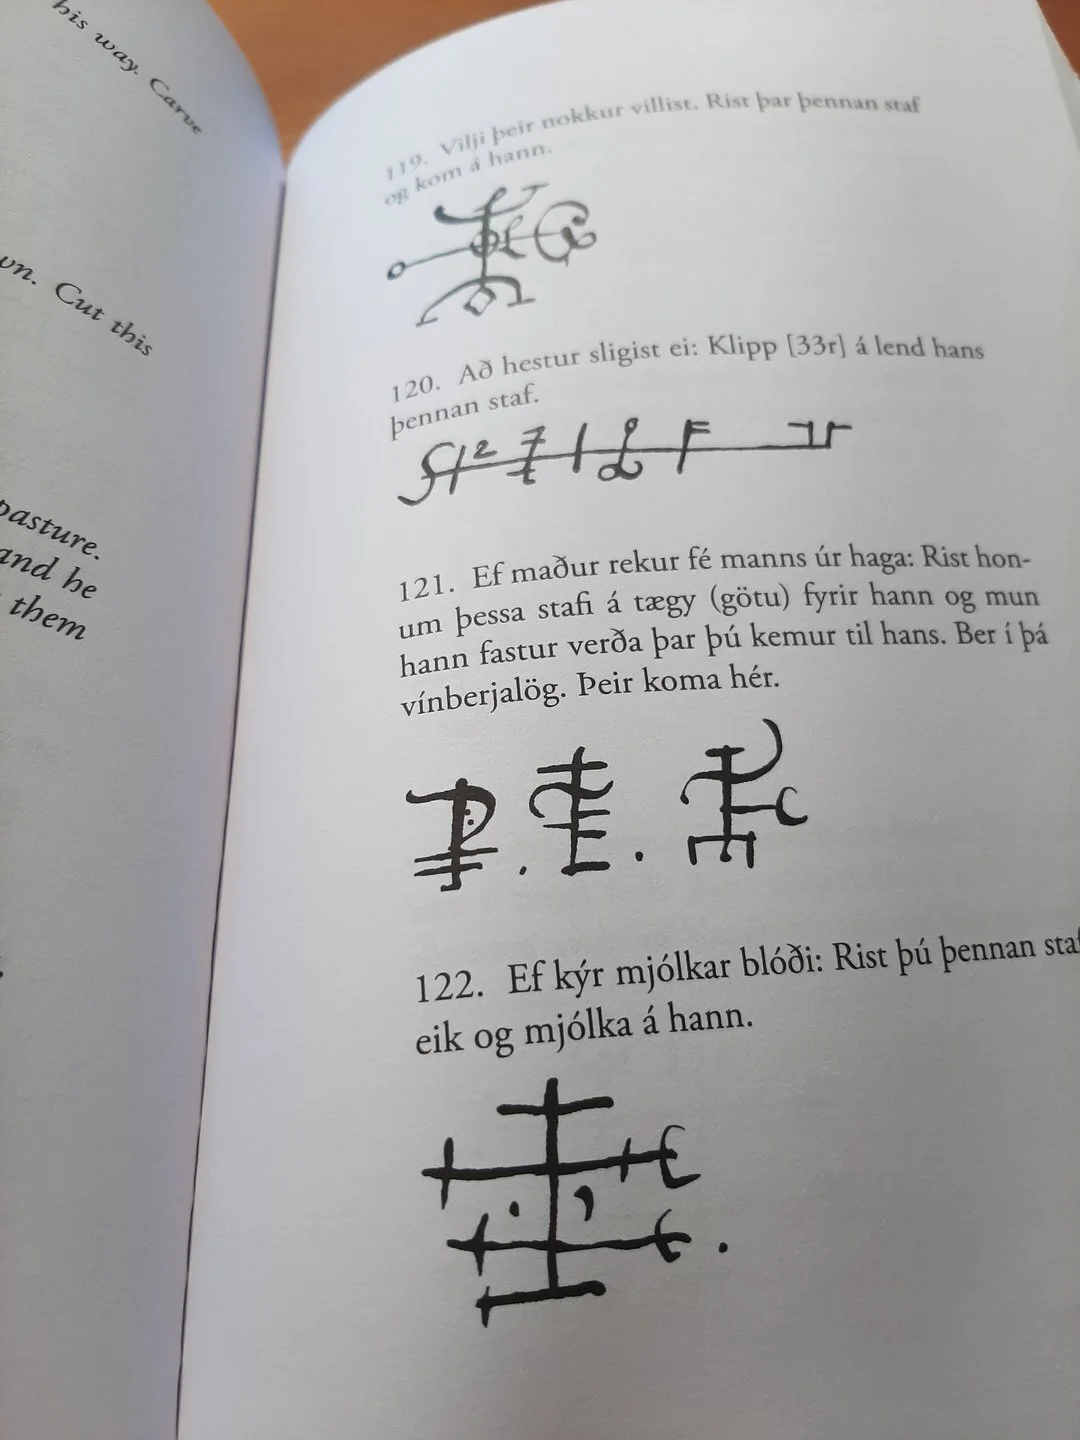 his way. Carve
wn. Cut this
pasture.
and he
them
119. Vilji þeir nokkur villist. Rist þar þennan staf
og kom á hann.
120. Að hestur sligist ei: Klipp [33r] á lend hans
þennan staf.
121. Ef maður rekur fé manns úr haga: Rist hon-
um þessa stafi á tægy (götu) fyrir hann og mun
hann fastur verða þar þú kemur til hans. Ber í þá
vínberjalög. Þeir koma hér.
122. Ef kýr mjólkar blóði: Rist þú þennan staf
eik og mjólka á hann.